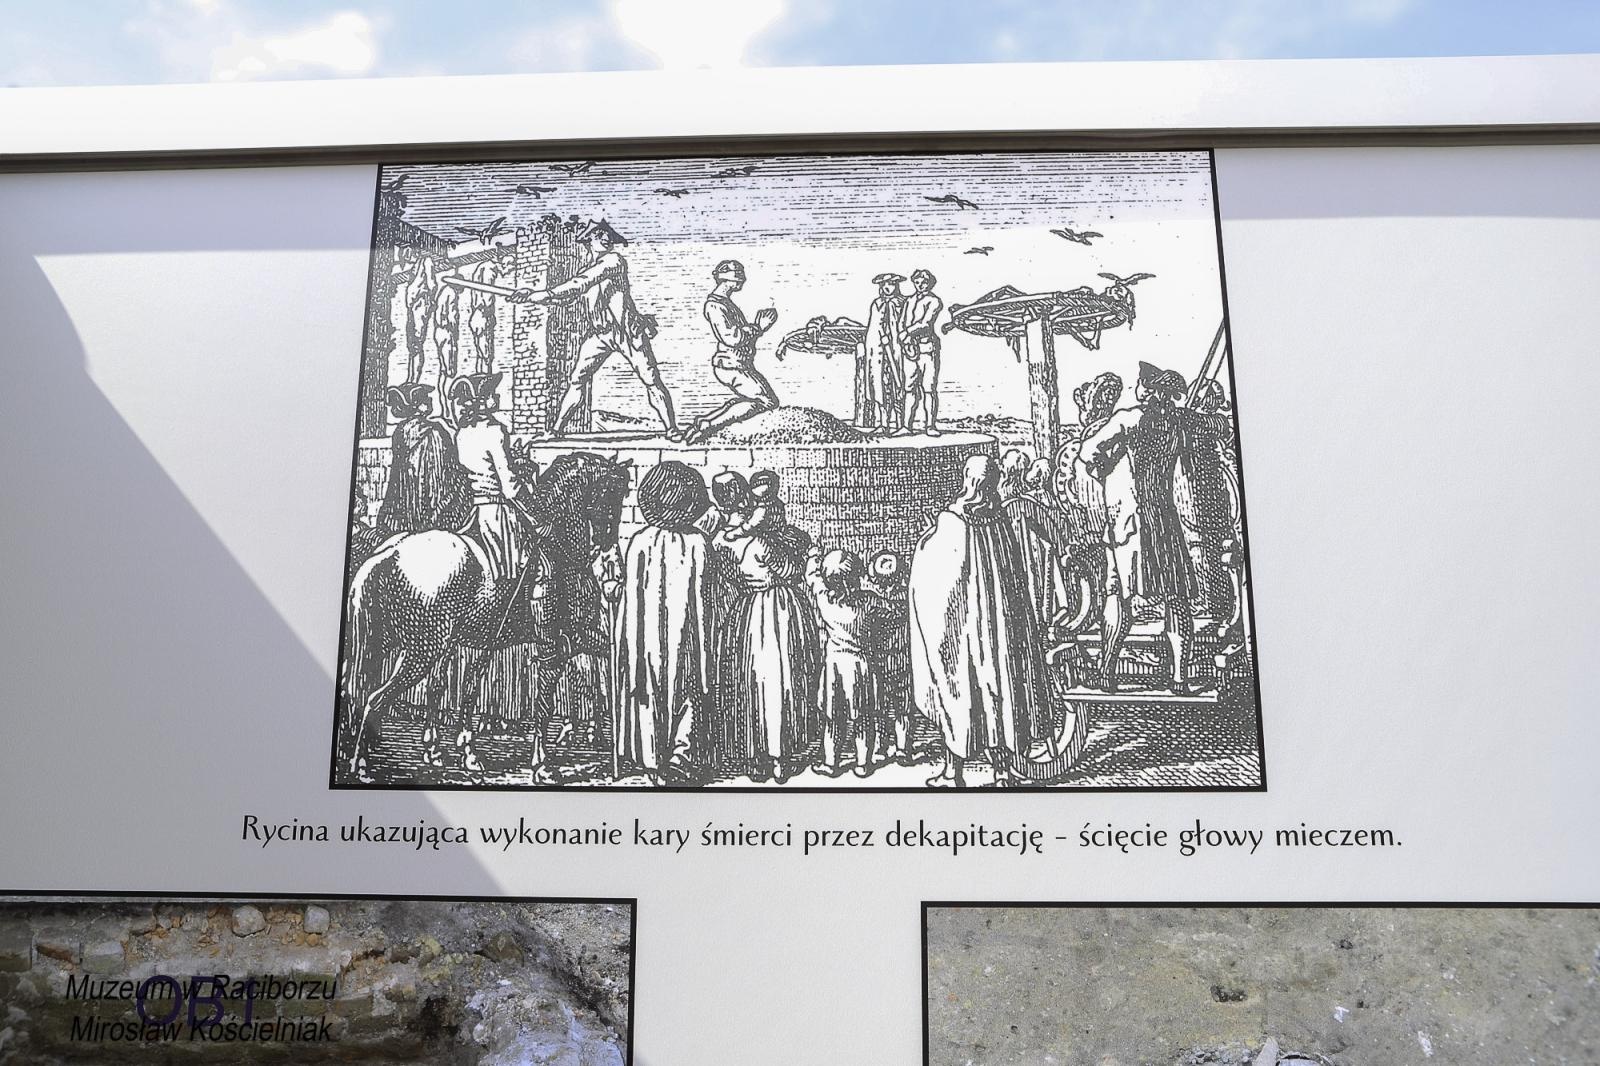 Rycina ukazująca wykonanie kary śmierci przez dekapitację - ścięcie głowy mieczem.
OB1
Muzeum w Raciborzu
Mirosław Kościelniak